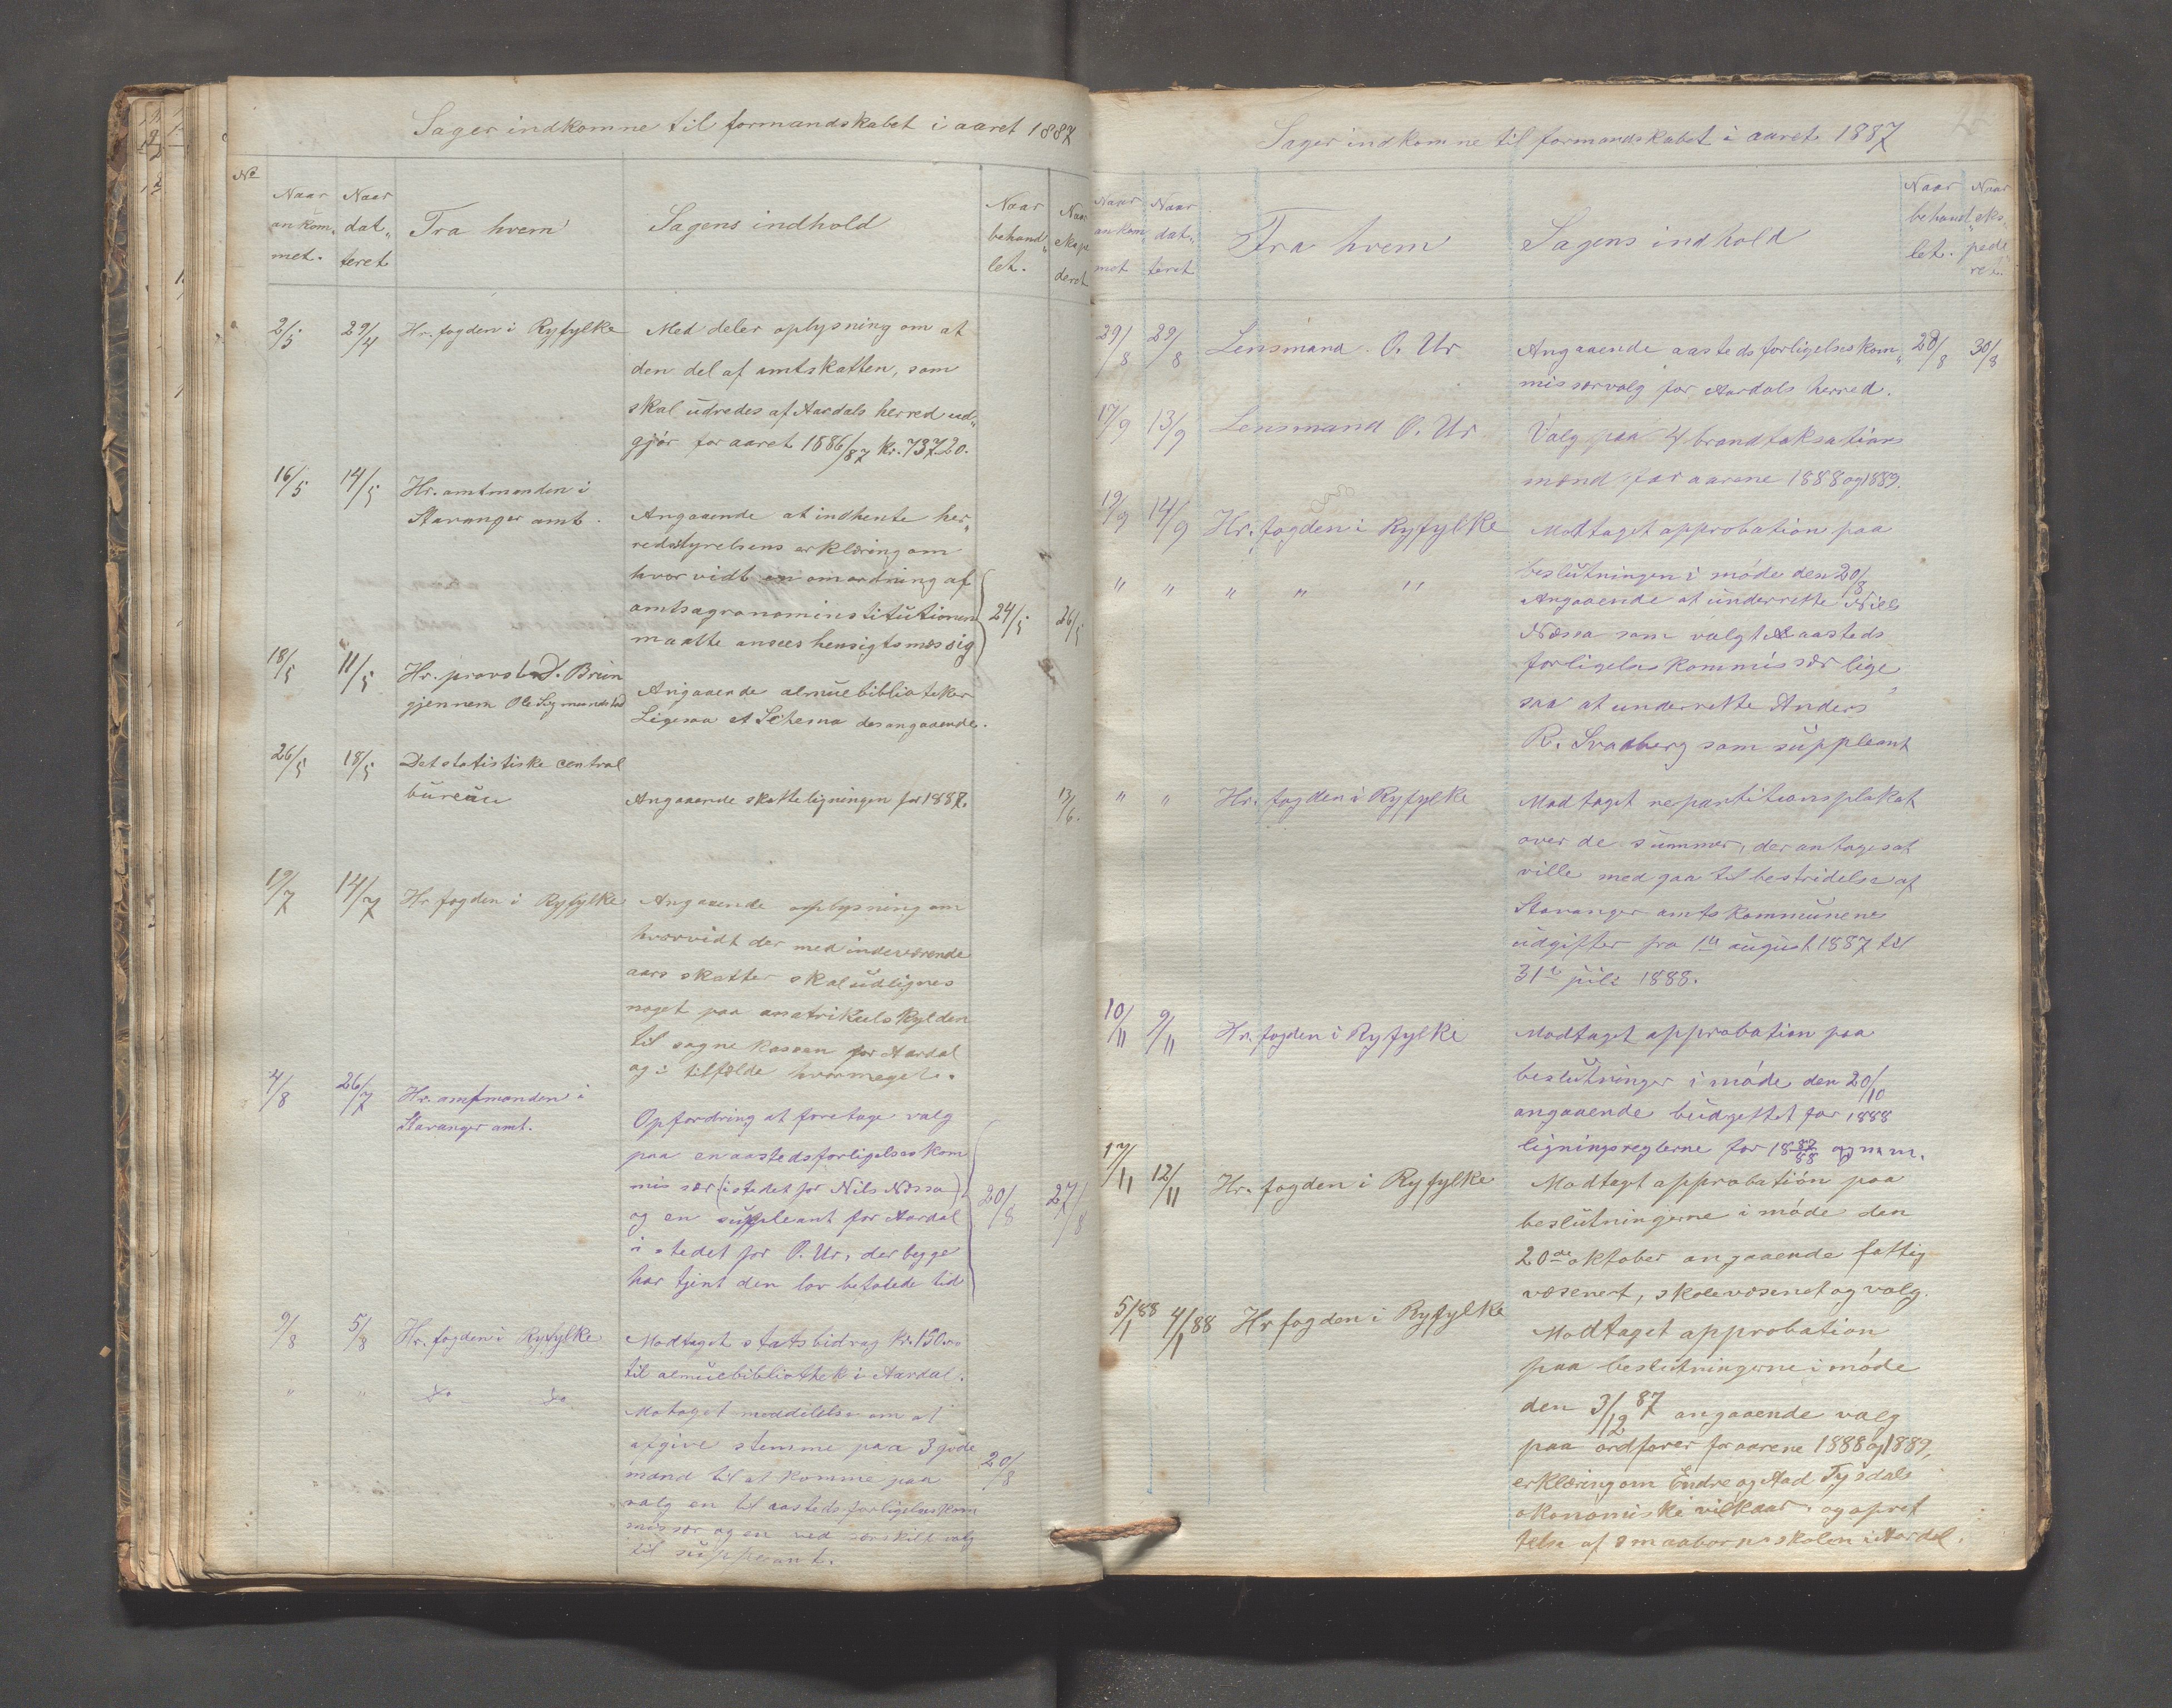 Sager indkomne til formandskabet i aaret 1887
No
Naar ankom„ met.
Naar dat„ teret
Fra hvem
Sagens indhold
Naar behand„ let.
Naar ekspe deret
2/5 29/4 Hr. fogden i Ryfylke Med deler oplysning om at
den del af amtskatten, som
skal udredes af Aardals herred ud„
gjör for aaret 1886/87 kr. 737.20.
16/5 14/5 Hr. amtmanden i
Stavanger amt. Angaaende at indhente her„
redsstyrelsens erklæring om
hvorvidt en omordning af
amtsagronominstitutionen 24/5 26/5
maatte ansees hensigtsmæssig
18/5 11/5 Hr. provst D. Brun
gjennem Ole Sigmundstad Angaaende almuebiblioteker
Ligesaa et Schema desangaaende.
26/5 18/5 Det statistiske central
bureau Angaaende skatteligningen for 1887. 13/6.
19/7 14/7 Hr fogden i Ryfylke Angaaende oplysning om
hvorvidt der med indeværende
aars skatter skal udlignes
noget paa matrikulskylden
til sognekassen for Aardal
og i tilfælde hvormeget.
4/8 26/7 Hr. amtmanden i
Stavanger amt. Opfordring at foretage valg
paa en aastedsforligelseskom
missær (istedet for Nils Næssa) 20/8 27/8
og en suppleant for Aardal
i stedet for O. Ur, der begge
har tjent den lov befalede tid
9/8 5/8 Hr. fogden i Ryfylke Modtaget statsbidrag kr. 150.00
til almuebibliothek i Aardal.
" " Do Do Motaget meddelelse om at
afgive stemme paa 3 gode
mænd til at komme paa 20/8
valg en til aastedsforligelseskom
missær og en ved særskilt valg
til suppleant.
Sager indkomne til formandskabet i aaret 1887
Naar ankom„ met
Naar dat„ teret
Fra hvem
Sagens indhold
Naar behand„ let.
Naar eks„ pede„ ret.
29/8 29/8 Lensmand O. Ur Angaaende aastedsforligelseskom„ 28/8 30/8
missærvalg for Aardals herred.
17/9 13/9 Lensmand O. Ur Valg paa 4 brandtaksations
mænd for aarene 1888 og 1889.
19/9 14/9 Hr. fogden i Ryfylke Modtaget approbation paa
beslutningen i möde den 20/8
" " " " " Angaaende at underrette Nils
Næssa som valgt aasteds
forligelseskommissær lige
saa at underrette Anders
R. Svadberg som suppleant
" " Hr. fogden i Ryfylke Modtaget repartitionsplakat
over de summer, der antages at
ville medgaa til bestridelse af
Stavanger amtskommunenes
udgifter fra 1te august 1887 til
31te juli 1888.
10/11 9/11 Hr. fogden i Ryfylke Modtaget approbation paa
beslutninger i möde den 20/10
angaaende budgettet for 1888
ligningsreglerne for 1887/88 og m. m.
17/11 12/11 Hr. fogden i Ryfylke Modtaget approbation paa
beslutningerne i möde den
20de oktober angaaende fattig
væsenet, skolevæsenet og valg.
5/1 88 4/1 88 Hr fogden i Ryfylke Modtaget approbation
paa beslutningerne i möde
den 3/12 87 angaaende valg
paa ordfører for aarene 1888 og 1889,
erklæring om Endre og Aad Tysdals
økonomiske vilkaar. og opret
telse af smaabornsskolen i Aardal.